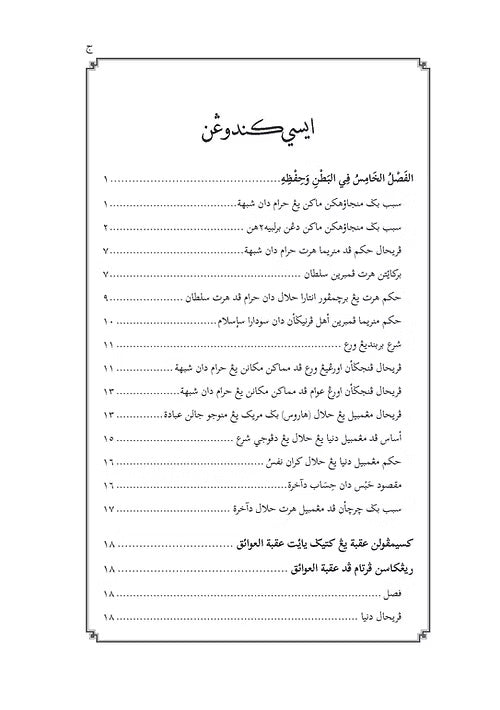 ج
ايسي كندوڠن
الفَصْلُ الخَامِسُ فِي البَطْنِ وَحِفْظِهِ ........ ١
سبب بݢ منجاؤهكن ماكن يڠ حرام دان شبهة ........ ١
سبب بݢ منجاؤهكن ماكن دڠن برلبيه٢هن ........ ٢
ڤريحال حكم ڤد منريما هرت حرام دان شبهة ........ ٧
بركائيتن هرت ڤمبرين سلطان ........ ٧
حكم هرت يڠ برچمڤور انتارا حلال دان حرام ڤد هرت سلطان ........ ٩
حكم منريما ڤمبرين أهل ڤرنيݢاٴن دان سودارا سإسلام ........ ١٠
شرع بربنديڠ ورع ........ ١١
ڤريحال ڤنجݢاٴن اورڠيڠ ورع ڤد مماكن مكانن يڠ حرام دان شبهة ........ ١١
ڤريحال ڤنجݢاٴن اورڠ عوام ڤد مماكن مكانن يڠ حرام دان شبهة ........ ١٣
ڤريحال مڠمبيل يڠ حلال (هاروس) بݢ مريك يڠ منوجو جالن عبادة ........ ١٣
أساس ڤد مڠمبيل دنيا يڠ حلال يڠ دڤوجي شرع ........ ١٥
حكم مڠمبيل دنيا يڠ حلال كران نفسُ ........ ١٦
مقصود حَبْس دان حِسَاب دآخرة ........ ١٦
سبب بݢ چرچاٴن ڤد مڠمبيل هرت حلال دآخرة ........ ١٧
كسيمڤولن عقبة يڠ كتيݢ يائيت عقبة العوائق ........ ١٨
ريڠكاسن ڤرتام ڤد عقبة العوائق ........ ١٨
فصل ........ ١٨
ڤريحال دنيا ........ ١٨